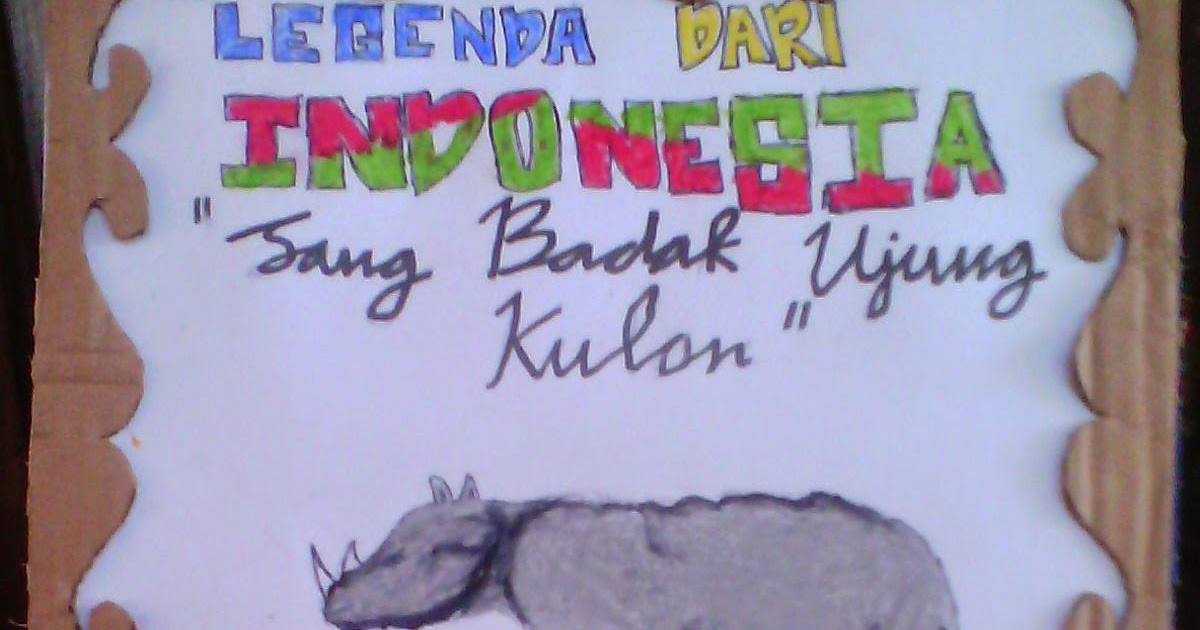 LEGENDA DARI
INDONESIA
"Sang Badak Ujung
Kulon"